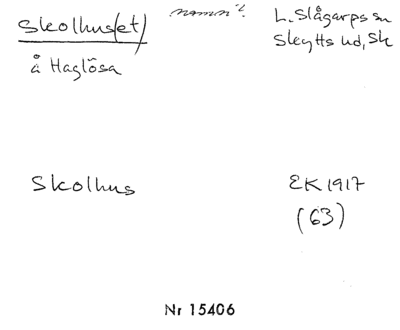 Skolhus(et) namn?. L. Slågarps sn
Skytts hd, Sk
å Haglösa
Skolhus EK 1917
(63)
Nr 15406